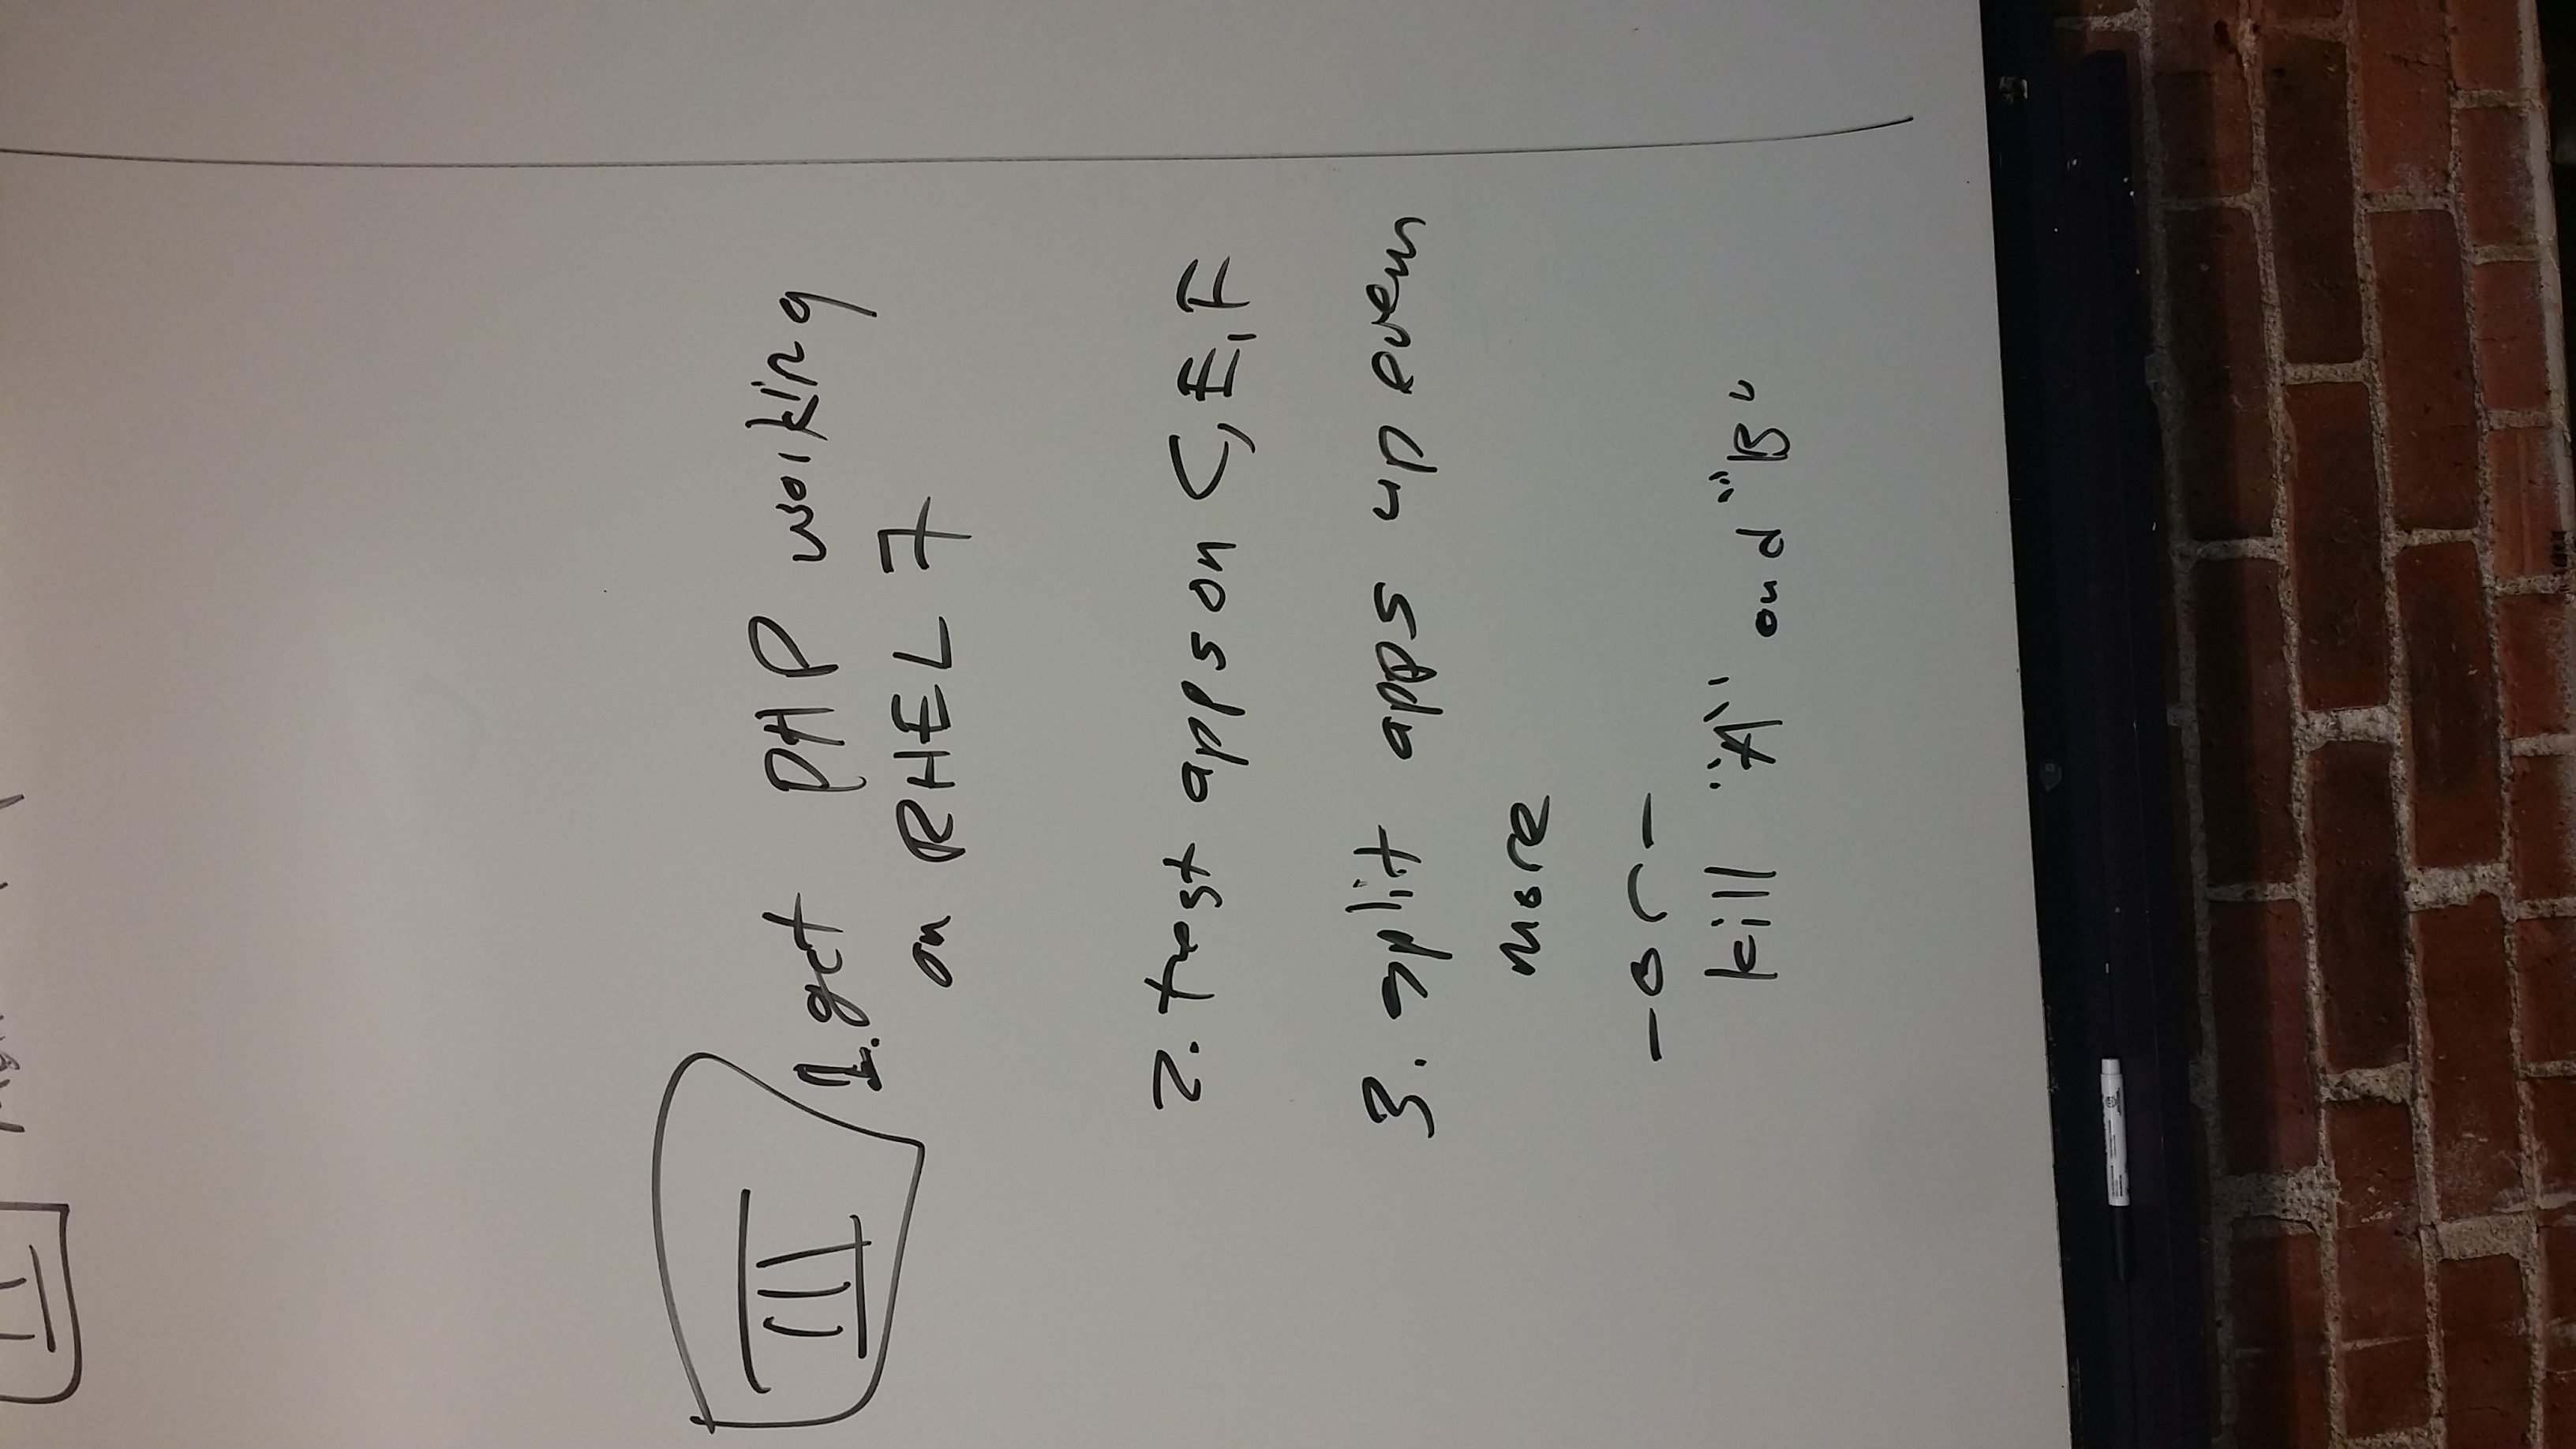 III
1. get PHP working
on RHEL 7
2. test apps on C, E, F
3. split apps up even
more
- or -
kill "A" and "B"
II